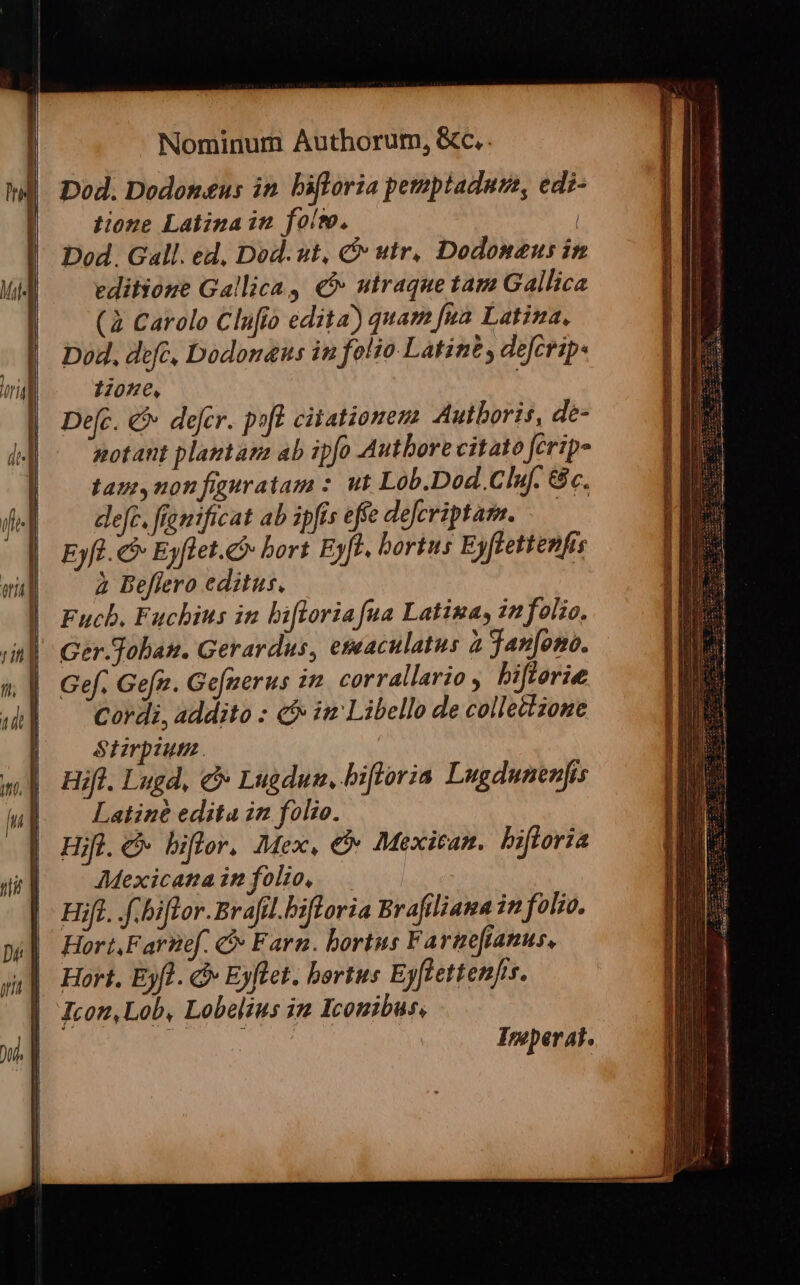 Nominum Authorum, &c.
Dod. Dodonæus in hiſtoria pemptadum, edi-
tione Latina in folio.
Dod. Gall. ed. Dod. ut, & utr, Dodonæus in
editione Gallica, & utraque tam Gallica
(à Carolo Cluſio edita) quam ſua Latina.
Dod. deſc, Dodonæus in folio Latinè, deſcrip-
tione,
Deſc. & deſcr. poſt citationem Authoris, de-
notant plantam ab ipſo Authore citato ſcrip-
tam, non figuratam : ut Lob. Dod. Cluſ. &c.
deſc. ſignificat ab ipſis eſſe deſcriptam.
Eyſt. & Eyſtet. & hort Eyſt, hortus Eyſtettenſis
à Beſlero editus.
Fuch. Fuchius in hiſtoria ſua Latina, in folio.
Ger. Johan. Gerardus, emaculatus à Janſono.
Geſ. Geſn. Geſnerus in corrallario, hiſtoriæ
Cordi, addito : & in Libello de collectione
Stirpium.
Hiſt. Lugd, & Lugdun, hiſtoria Lugdunenſis
Latinè edita in folio.
Hiſt. & hiſtor. Mex, & Mexican. hiſtoria
Mexicana in folio,
Hiſt. ſ. hiſtor. Braſil. hiſtoria Braſiliana in folio.
Hort, Farneſ. & Farn. hortus Farneſianus,
Hort. Eyſt. & Eyſtet. hortus Eyſtettenſis.
Icon, Lob, Lobelius in Iconibus,
Imperat.